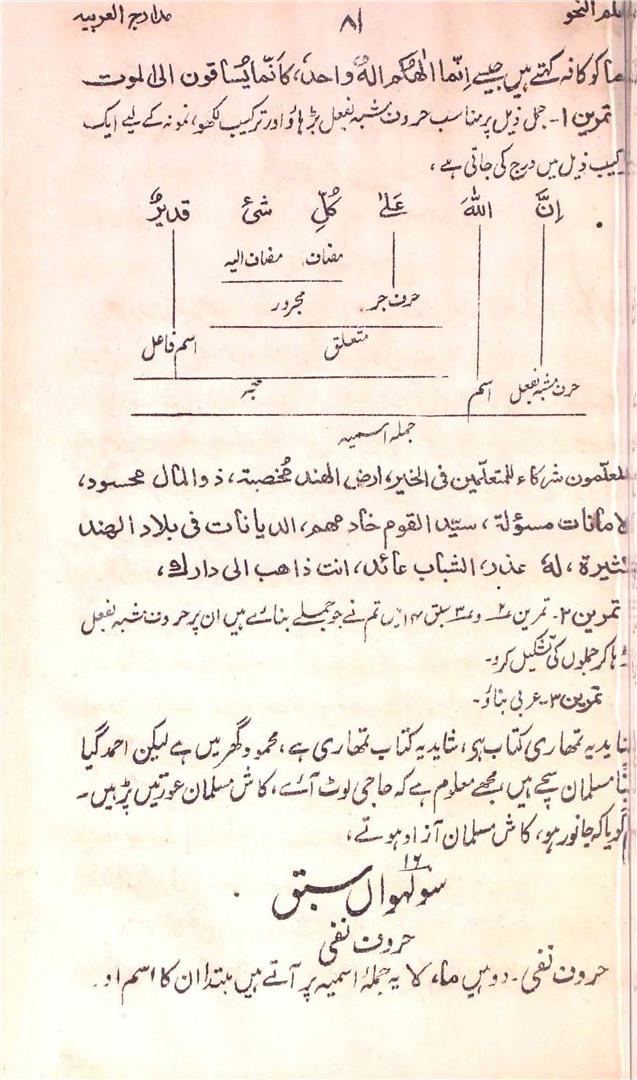 علم النحو ۸۱ مدارج العربیہ
ما کو کافہ کہتے ہیں جیسے اِنّما الٰھکم الہٌ واحدٌ، کَاَنّما یُساقون الی الموت
تمرین ۱- جمل ذیل پر مناسب حروف مشبہ بفعل بڑھاؤ اور ترکیب لکھو، نمونہ کے لیے ایک
ترکیب ذیل میں درج کی جاتی ہے،
اِنَّ اللہَ عَلٰی کُلِّ شیٔ قدیرٌ
مضاف مضاف الیہ
حرف جر مجرور
متعلق اسم فاعل
حرف مشبہ بفعل اسم
جملہ اسمیہ
المعلّمون شرکاء للمتعلّمین فی الخیر، ارض الھند مُخصبۃ، ذو المال محسود،
الامانات مسؤلۃ، سیّد القوم خادمھم، الدیانات فی بلاد الھند
کثیرۃ، لہٗ عذر، الشباب عائد، انت ذاھب الی دارک،
تمرین ۲- تمرین ۲ و ۳ سبق ۱۴ میں تم نے جو جملے بنائے ہیں ان پر حروف مشبہ بفعل
بڑھا کر جملوں کی تشکیل کرو۔
تمرین ۳- عربی بناؤ۔
شاید یہ تمھاری کتاب ہی، شاید یہ کتاب تمھاری ہے، محمود گھر میں ہے لیکن احمد گیا
مسلمان سچے ہیں، مجھے معلوم ہے کہ حاجی لوٹ آئے، کاش مسلمان عورتیں پڑہیں۔
گویا کہ جانور ہو، کاش مسلمان آزاد ہوتے،
۱۶
سولہواں سبق
حروف نفی
حروف نفی- دو ہیں ما، لا یہ جملۂ اسمیہ پر آتے ہیں مبتدا ان کا اسم او